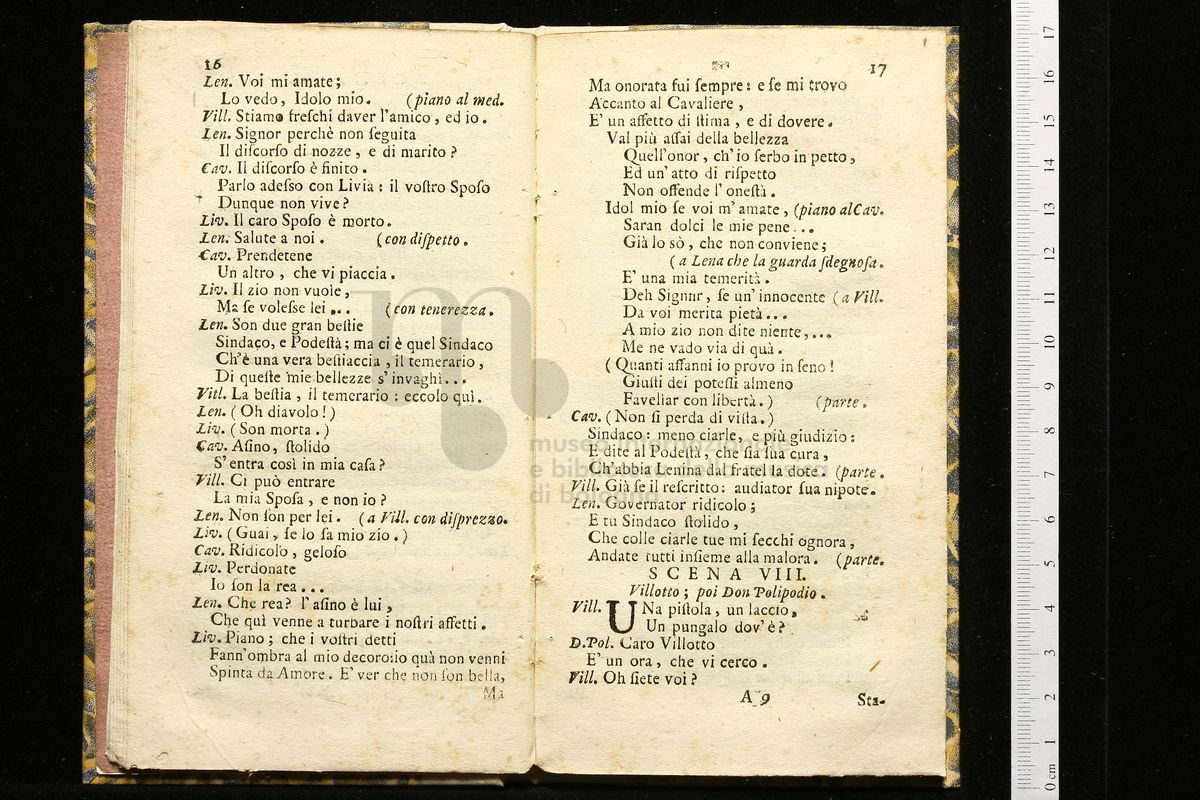 16
Len. Voi mi amate;
Lo vedo, Idolo mio. (piano al med.
Vill. Stiamo freschi daver l'amico, ed io.
Len. Signor perchè non ſeguita
Il diſcorſo di nozze, e di marito?
Cav. Il diſcorſo è finito.
Parlo adeſso con Livia: il voſtro Spoſo
Dunque non vive?
Liv. Il caro Spoſo è morto.
Len. Salute a noi. (con diſpetto.
Cav. Prendetene
Un altro, che vi piaccia.
Liv. Il zio non vuole,
Ma ſe voleſse lei ... (con tenerezza.
Len. Son due gran beſtie
Sindaco, e Podeſtà; ma ci è quel Sindaco
Ch'è una vera beſtiaccia, il temerario,
Di queſte mie bellezze s'invaghì...
Vitl. La beſtia, il temerario: eccolo quì.
Len. (Oh diavolo!)
Liv. (Son morta.)
Cav. Aſino, ſtolido
S'entra così in mia caſa?
Vill. Ci può entrare
La mia Spoſa, e non io?
Len. Non ſon per lei. (a Vill. con diſprezzo.
Liv. (Guai, ſe lo ſa mio zio.)
Cav. Ridicolo, geloſo
Liv. Perdonate
Io ſon la rea...
Len. Che rea? l'aſino è lui,
Che quì venne a turbare i noſtri affetti.
Liv. Piano; che i voſtri detti
Fann'ombra al mio decoro: io quà non venni
Spinta da Amore. E' ver che non ſon bella,
Ma
17
Ma onorata fui ſempre: e ſe mi trovo
Accanto al Cavaliere,
E' un affetto di ſtima, e di dovere.
Val più aſſai della bellezza
Quell'onor, ch'io ſerbo in petto,
Ed un' atto di riſpetto
Non offende l'oneſtà.
Idol mio ſe voi m'amate, (piano al Cav.
Saran dolci le mie pene...
Già lo sò, che non conviene;
(a Lena che la guarda ſdegnoſa.
E' una mia temerità.
Deh Signnr, ſe un' innocente (a Vill.
Da voi merita pietà...
A mio zio non dite niente,...
Me ne vado via di quà.
(Quanti affanni io provo in ſeno!
Giuſti dei poteſſi almeno
Favellar con libertà.) (parte.
Cav. (Non ſi perda di viſta.)
Sindaco: meno ciarle, e più giudizio:
E dite al Podeſtà, che ſia ſua cura,
Ch'abbia Lenina dal fratel la dote. (parte.
Vill. Già ſe il reſcritto: audiator ſua nipote.
Len. Governator ridicolo;
E tu Sindaco ſtolido,
Che colle ciarle tue mi ſecchi ognora,
Andate tutti inſieme alla malora. (parte.
SCENA VIII.
Villotto; poi Don Polipodio.
Vill. UNa piſtola, un laccio,
Un pungalo dov'è?
D.Pol. Caro Villotto
E' un ora, che vi cerco.
Vill. Oh ſiete voi?
A 9 Sta-